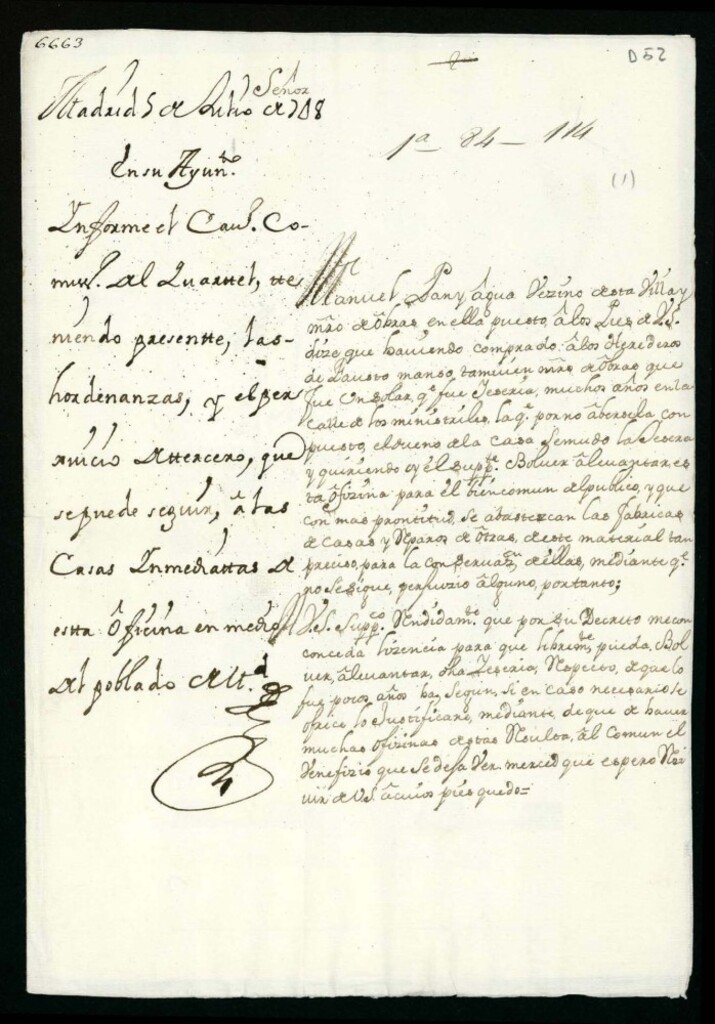 6663
D52
Señor
Madrid 5 de Julio de 708
1ª 84 - 114
(1)
En su Ayunto.
Informe el Cauº. Co-
miss.º del Quartel, tte
niendo presentte, las
hordenanzas, y el per
xuicio de tterceno, que
se puede seguir, â las
Casas Inmediattas de
estta ôficina en medio
del poblado de Md.
Manuel Pan y âgua Vezino de sta Villa y
mro de ôbras en ella puesto, â los Pies de V.S.
dize que haviendo comprado, â los Herederos
de Fausto manso, tamvien mro. de ôbras que
fue Un solar, q.e fue Yeseria, muchos años en la
Calle de los ministriles, la q.e por no âbersela con
puesto, el dueño de la Casa se mudo la Yeseria
y quiriendo oy él supp.te Bolver âlevantar es
ta ôfizina para él bien comun del publico, y que
con mas prontitud, se abastezcan las fabricas
de Casas y Reparos de otras, de este material tan
preciso, para la conservaz.on de ellas, mediante q.e
no se sigue, perjuizio âlguno, por tanto;
V.S. supp.co Rendidam.te que por su Decreto me con
conceda lizencia para que librem.te pueda, Bol
ver, âlevantar, dha Yeseria, Respecto, de que lo
fue pocos años ha, segun, si en caso necesario se
ofrece lo Justificare, mediante, de que de haver
muchas ofizinas de estas Resulta, âl Comun el
Venefizio que se deja Ver. merced que espero Rezi
vir de V.S. â cuios pies quedo=